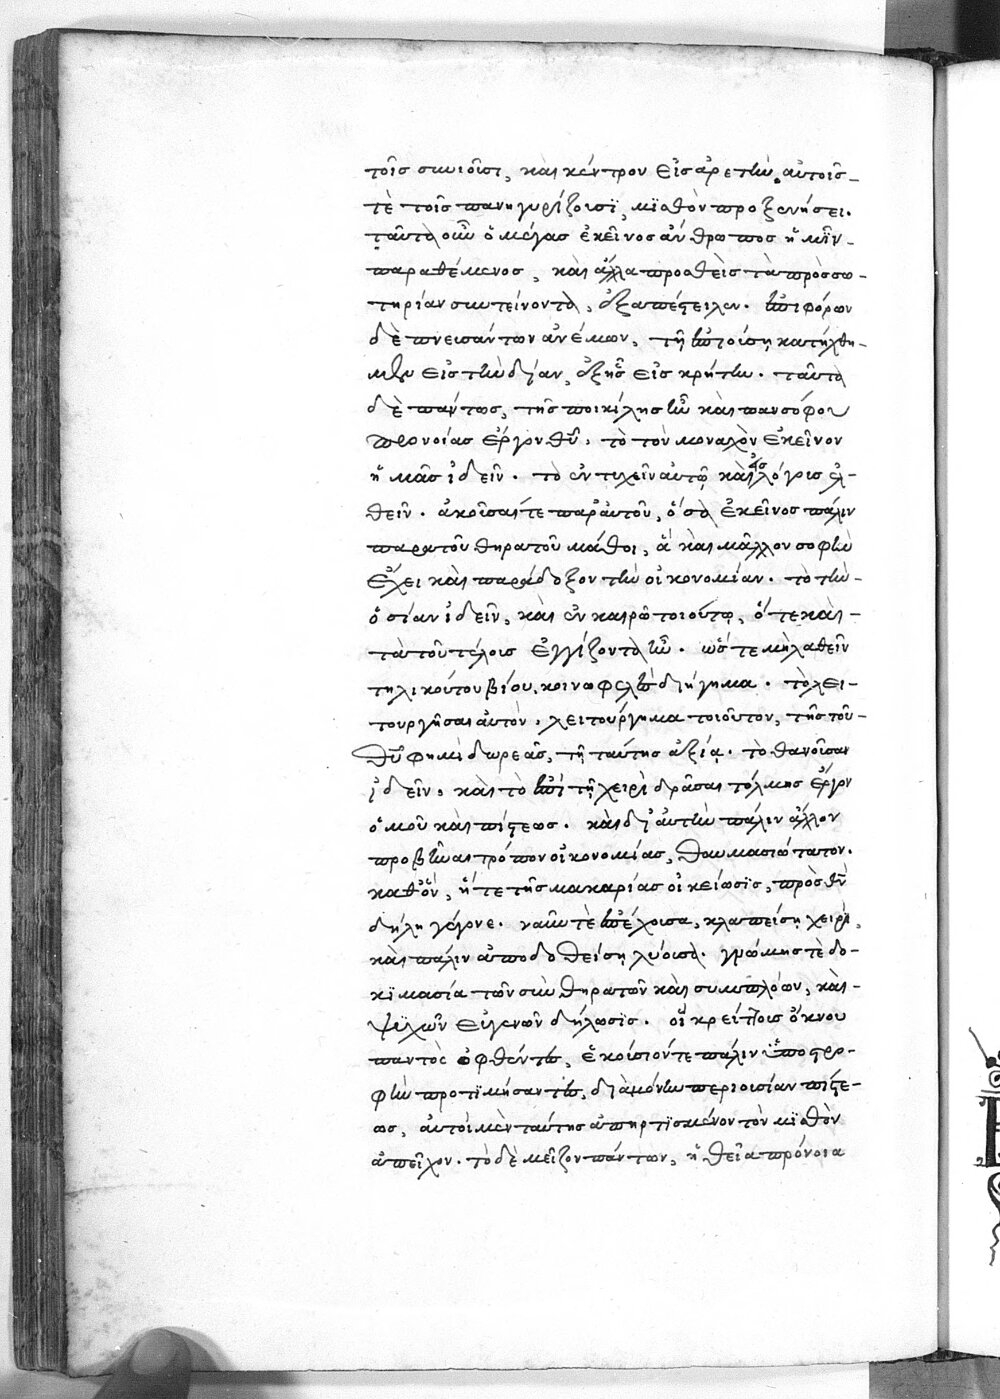 τοῖς συνιοῦσι, καὶ κέντρον εἰς ἀρετὴν. αὐτοῖς
τὲ τοῖς πανηγυρίζουσϊ, μϊσθὸν προξενήσει.
ταῦτα οὖν ὁ μέγας ἐκεῖνος ἄνθρωπος ἡμῖν
παραθέμενος, καὶ ἄλλα προσθεὶς τὰ πρὸς σω-
τηρίαν συντείνοντα, ἐξαπέστειλεν. ἐπιφόρων
δὲ πνευσάντων ἀνέμων, τῇ ἐπιούσῃ κατήχθη-
μεν εἰς τὴν δίαν, ἐξῆς εἰς κρήτην. ταῦτα
δὲ πάντως, τῆς ποικίλης ἦν καὶ πανσόφου
προνοίας ἔργον θῦ. τὸ τὸν μοναχὸν ἐκεῖνον
ἡμᾶς ἰδεῖν. τὸ ἐντυχεῖν αὐτῷ καὶ εἰς λόγους ἐλ-
θεῖν. ἀκοῦσαί τε παρ' αὐτοῦ, ὅσα ἐκεῖνος πάλιν
παρὰ τοῦ θηρατοῦ μάθοι, ἃ καὶ μᾶλλον σοφὴν
ἔχει καὶ παράδοξον τὴν οἰκονομίαν. τὸ τὴν
ὁσίαν ἰδεῖν, καὶ ἐν καιρῷ τοιούτῳ, ὅτε καὶ
τὰ τοῦ τέλους ἐγγίζοντα ἦν. ὥστε μὴ λαθεῖν
τηλικούτου βίου, κοινωφελὲς διήγημα. τὸ λει-
τουργῆσαι αὐτὸν, λειτούργημα τοιοῦτον, τῆς τοῦ
θῦ φημὶ δωρεᾶς, τῇ ταύτης ἀξίᾳ. τὸ θανοῦσαν
ἰδεῖν. καὶ τὸ ἐπὶ τῇ χειρὶ δρᾶσαι τόλμης ἔργον
ὁμοῦ καὶ πίστεως. καὶ δι' αὐτὴν πάλιν ἄλλον
προβῆναι τρόπον οἰκονομίας, θαυμασιώτατον.
καθ' ὃν, ἥ τε τῆς μακαρίας οἰκείωσϊς, πρὸς θν̄
δήλη γέγονε. ναῦν τὲ ἐπέχουσα, κλαπείσῃ χειρὶ,
καὶ πάλιν ἀποδοθείσῃ λύουσα. γνώμης τὲ δο-
κϊμασία τῶν συνθηρατῶν καὶ συμπλόων, καὶ
ψϋχῶν εὐγενῶν δήλωσϊς. οἳ κρείττους ὄκνου
παντὸς ὀφθέντες, ἑκούσιόν τε πάλιν ὑποστρο-
φὴν προτϊμήσαντες, διὰ μόνην περιουσίαν πίστε-
ως, αὐτοὶ μὲν ταύτης ἀπηρτϊσμένον τὸν μϊσθὸν
ἀπεῖχον. τὸ δὲ μεῖζον πάντων, ἡ θεία πρόνοια